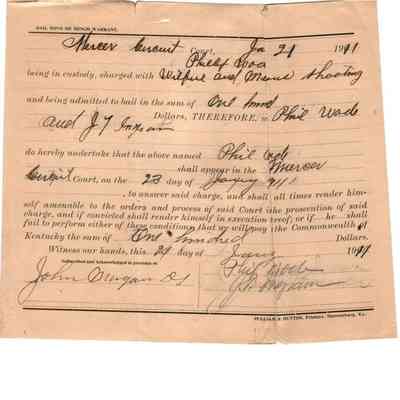 BAIL BOND OR BENCH WARRANT.
Mercer Circuit Court, Ja 21 1911
being in custody, charged with and shooting
and being admitted to bail in the sum of One hund
Dollars, THEREFORE, Phil Wade
and J T Ingram
do hereby undertake that the above named Phil
shall appear in the Mercer
Circuit Court, on the 23 day of
to answer said charge, and shall at all times render him-
self amenable to the orders and process of said Court the prosecution of said
charge, and if convicted shall render himself in execution ; or if he shall
fail to perform either of these conditions that we will pay the Commonwealth of
Kentucky the sum of One hundred Dollars.
Witness our hands, this 21 day of 1911
Subscribed and acknowledged in presence of
John DS
Phil Wade
J T Ingram
Printers, Harrodsburg, Ky.